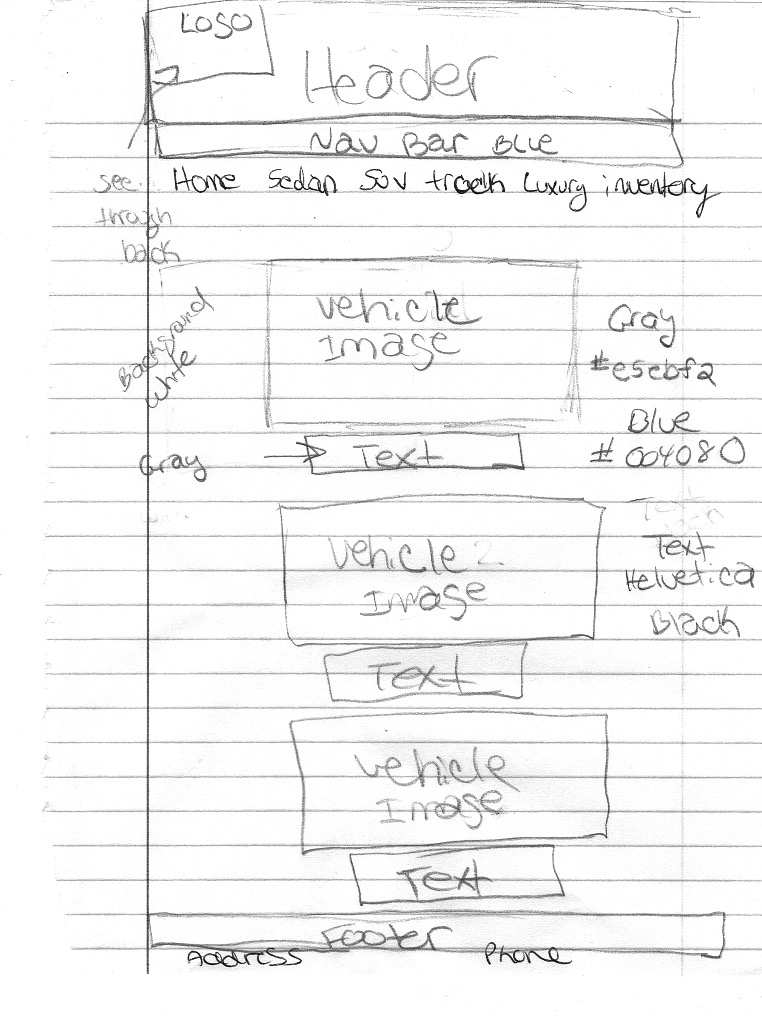 Logo
Header
Nav Bar Blue
Home Sedan SUV truck Luxury inventory
see
thrugh
back
Background
White
vehicle
Image
Gray
#e5ebf2
Blue
# 004080
Gray
Text
vehicle 2
Image
Text
Text
Helvetica
Black
Text
vehicle
Image
Text
Footer
Address Phone